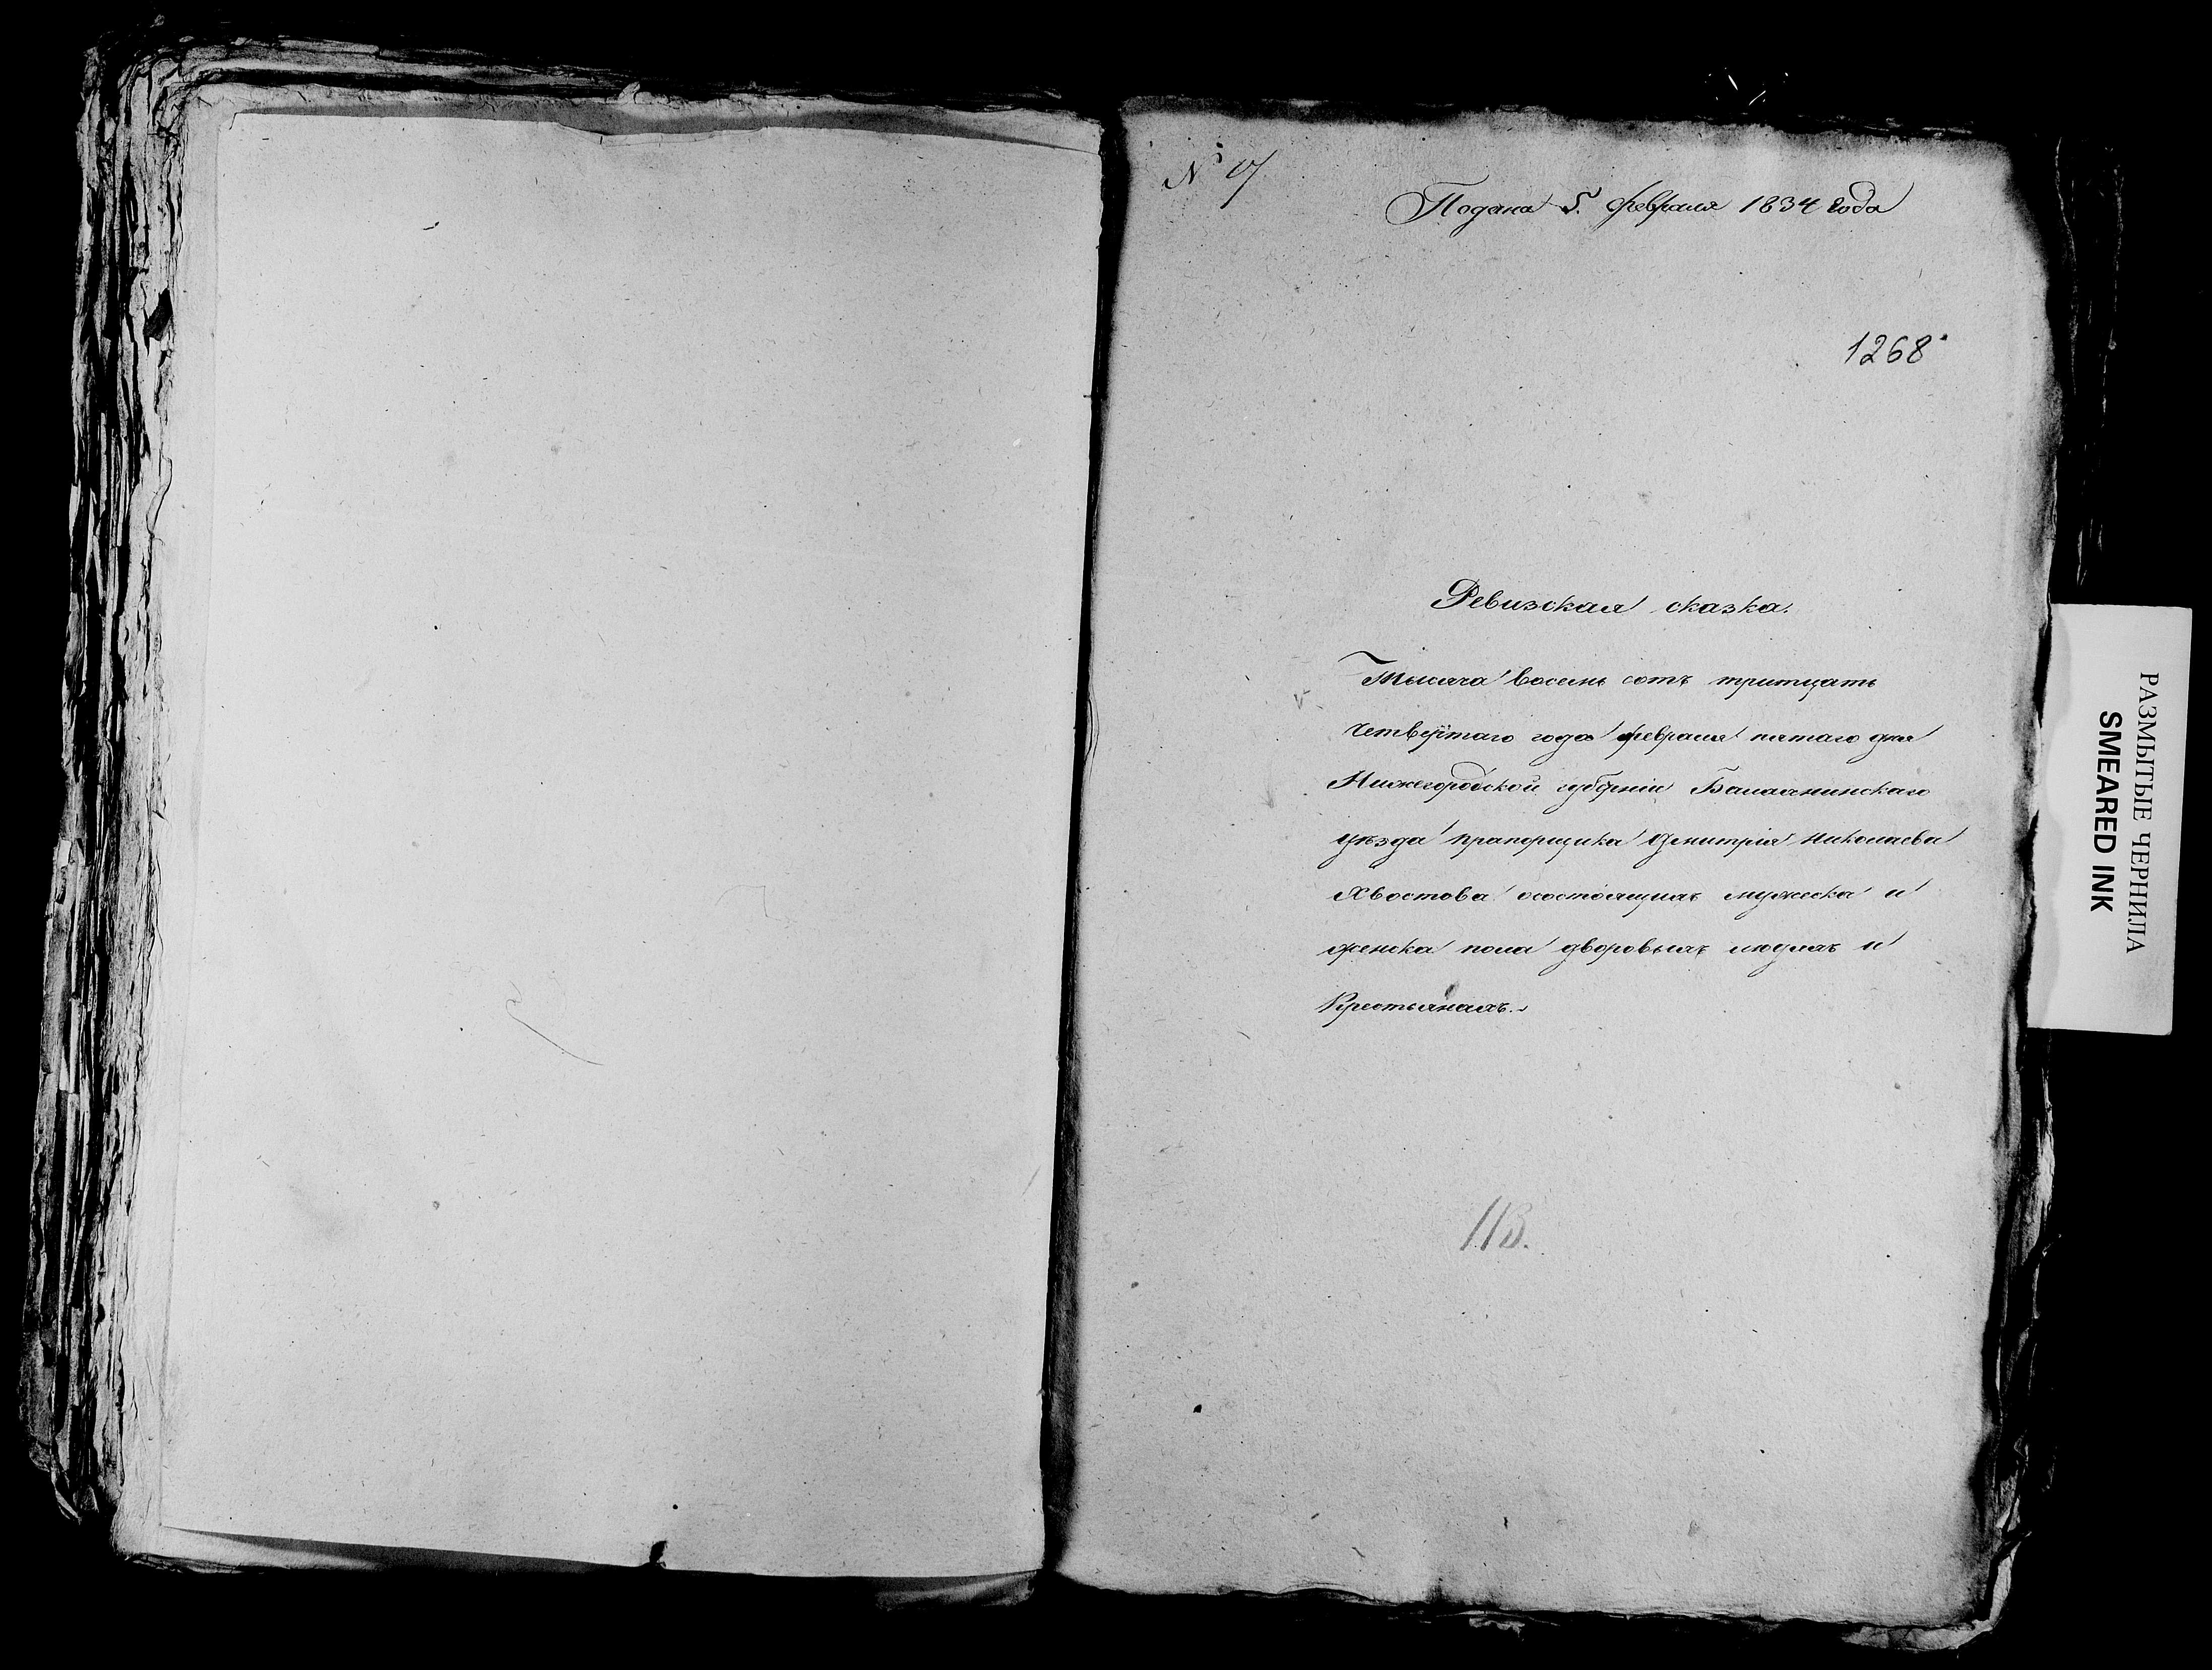 №
Подана 5. февраля 1834 года
1268
Ревизская сказка.
Тысяча восемь сотъ тритцать
четвертаго года февраля пятаго дня
Нижегородской губерніи Балахнинскаго
уѣзда прапорщика Дмитрія Николаева
Хвостова осостоящихъ мужеска и
женска пола дворовыхъ людяхъ и
Крестьянахъ.
РАЗМЫТЫЕ ЧЕРНИЛА
SMEARED INK